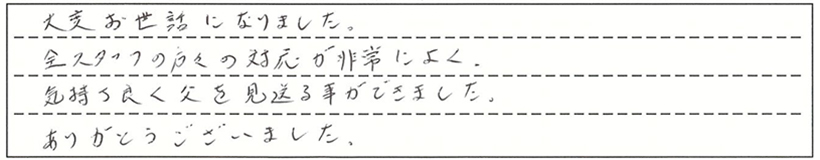 大変お世話になりました。
全スタッフの方々の対応が非常によく、
気持ち良く父を見送る事ができました。
ありがとうございました。